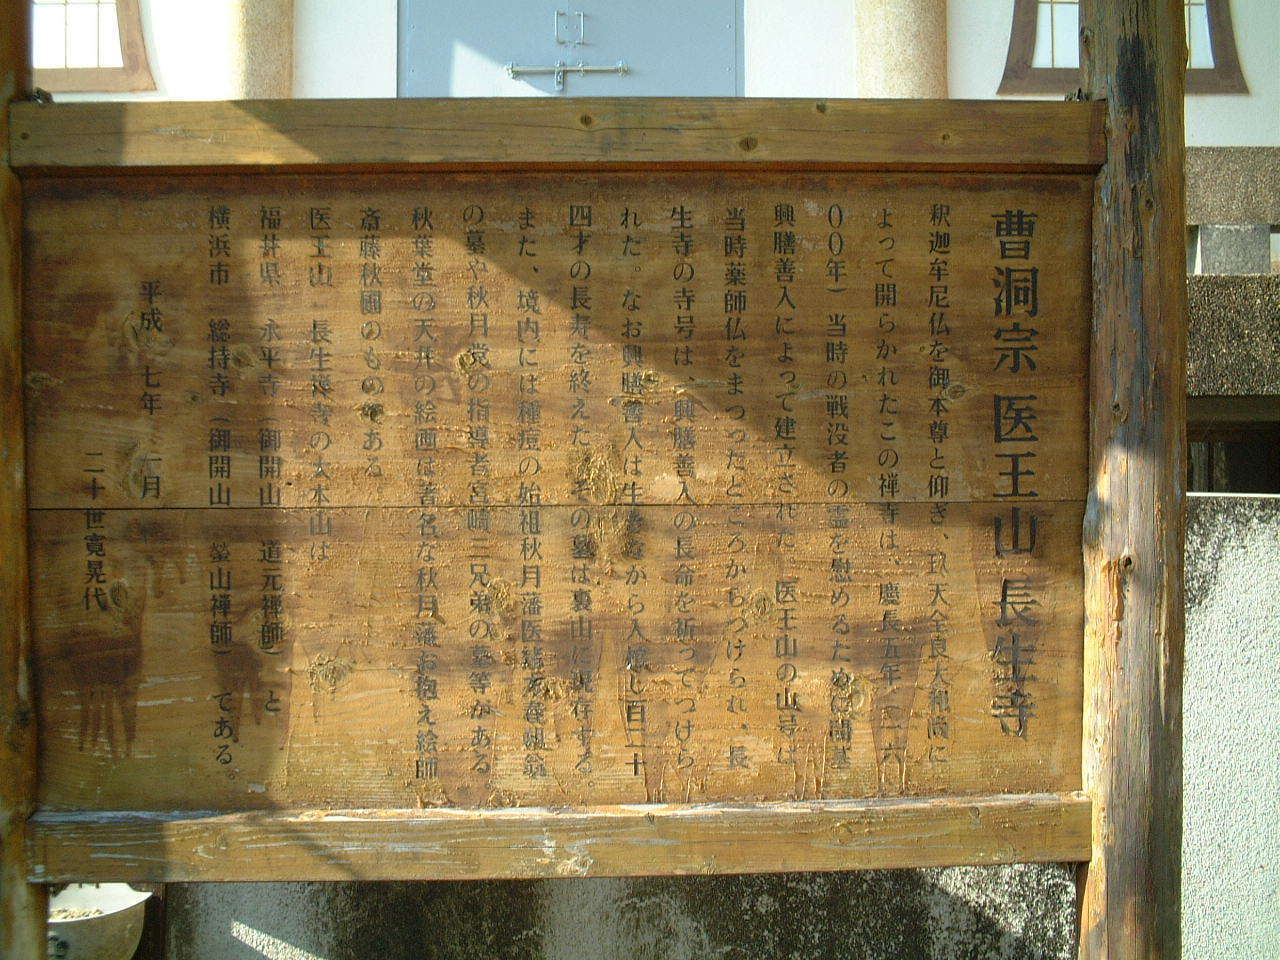 曹洞宗 医王山 長生寺
釈迦牟尼仏を御本尊と仰ぎ、玖天全良大和尚に
よって開らかれたこの禅寺は、慶長五年(一六
〇〇年)当時の戦没者の霊を慰めるため開基
興膳善入によって建立された。医王山の山号は
当時薬師仏をまつったところからつけられ、長
生寺の寺号は、興膳善入の長命を祈ってつけら
れた。なお興膳善入は生 から入 し百二十
四才の長寿を終えた。その墓は裏山に現存する。
また、境内には種痘の始祖秋月藩医緒方春朔翁
の墓や秋月党の指導者宮崎三兄弟の墓等がある
秋葉堂の天井の絵画は著名な秋月藩お抱え絵師
斎藤秋圃のものである
医王山 長生禅寺の大本山は
福井県 永平寺(御開山 道元禅師)と
横浜市 総持寺(御開山 瑩山禅師)である。
平成 七年 二月
二十世寛晃代